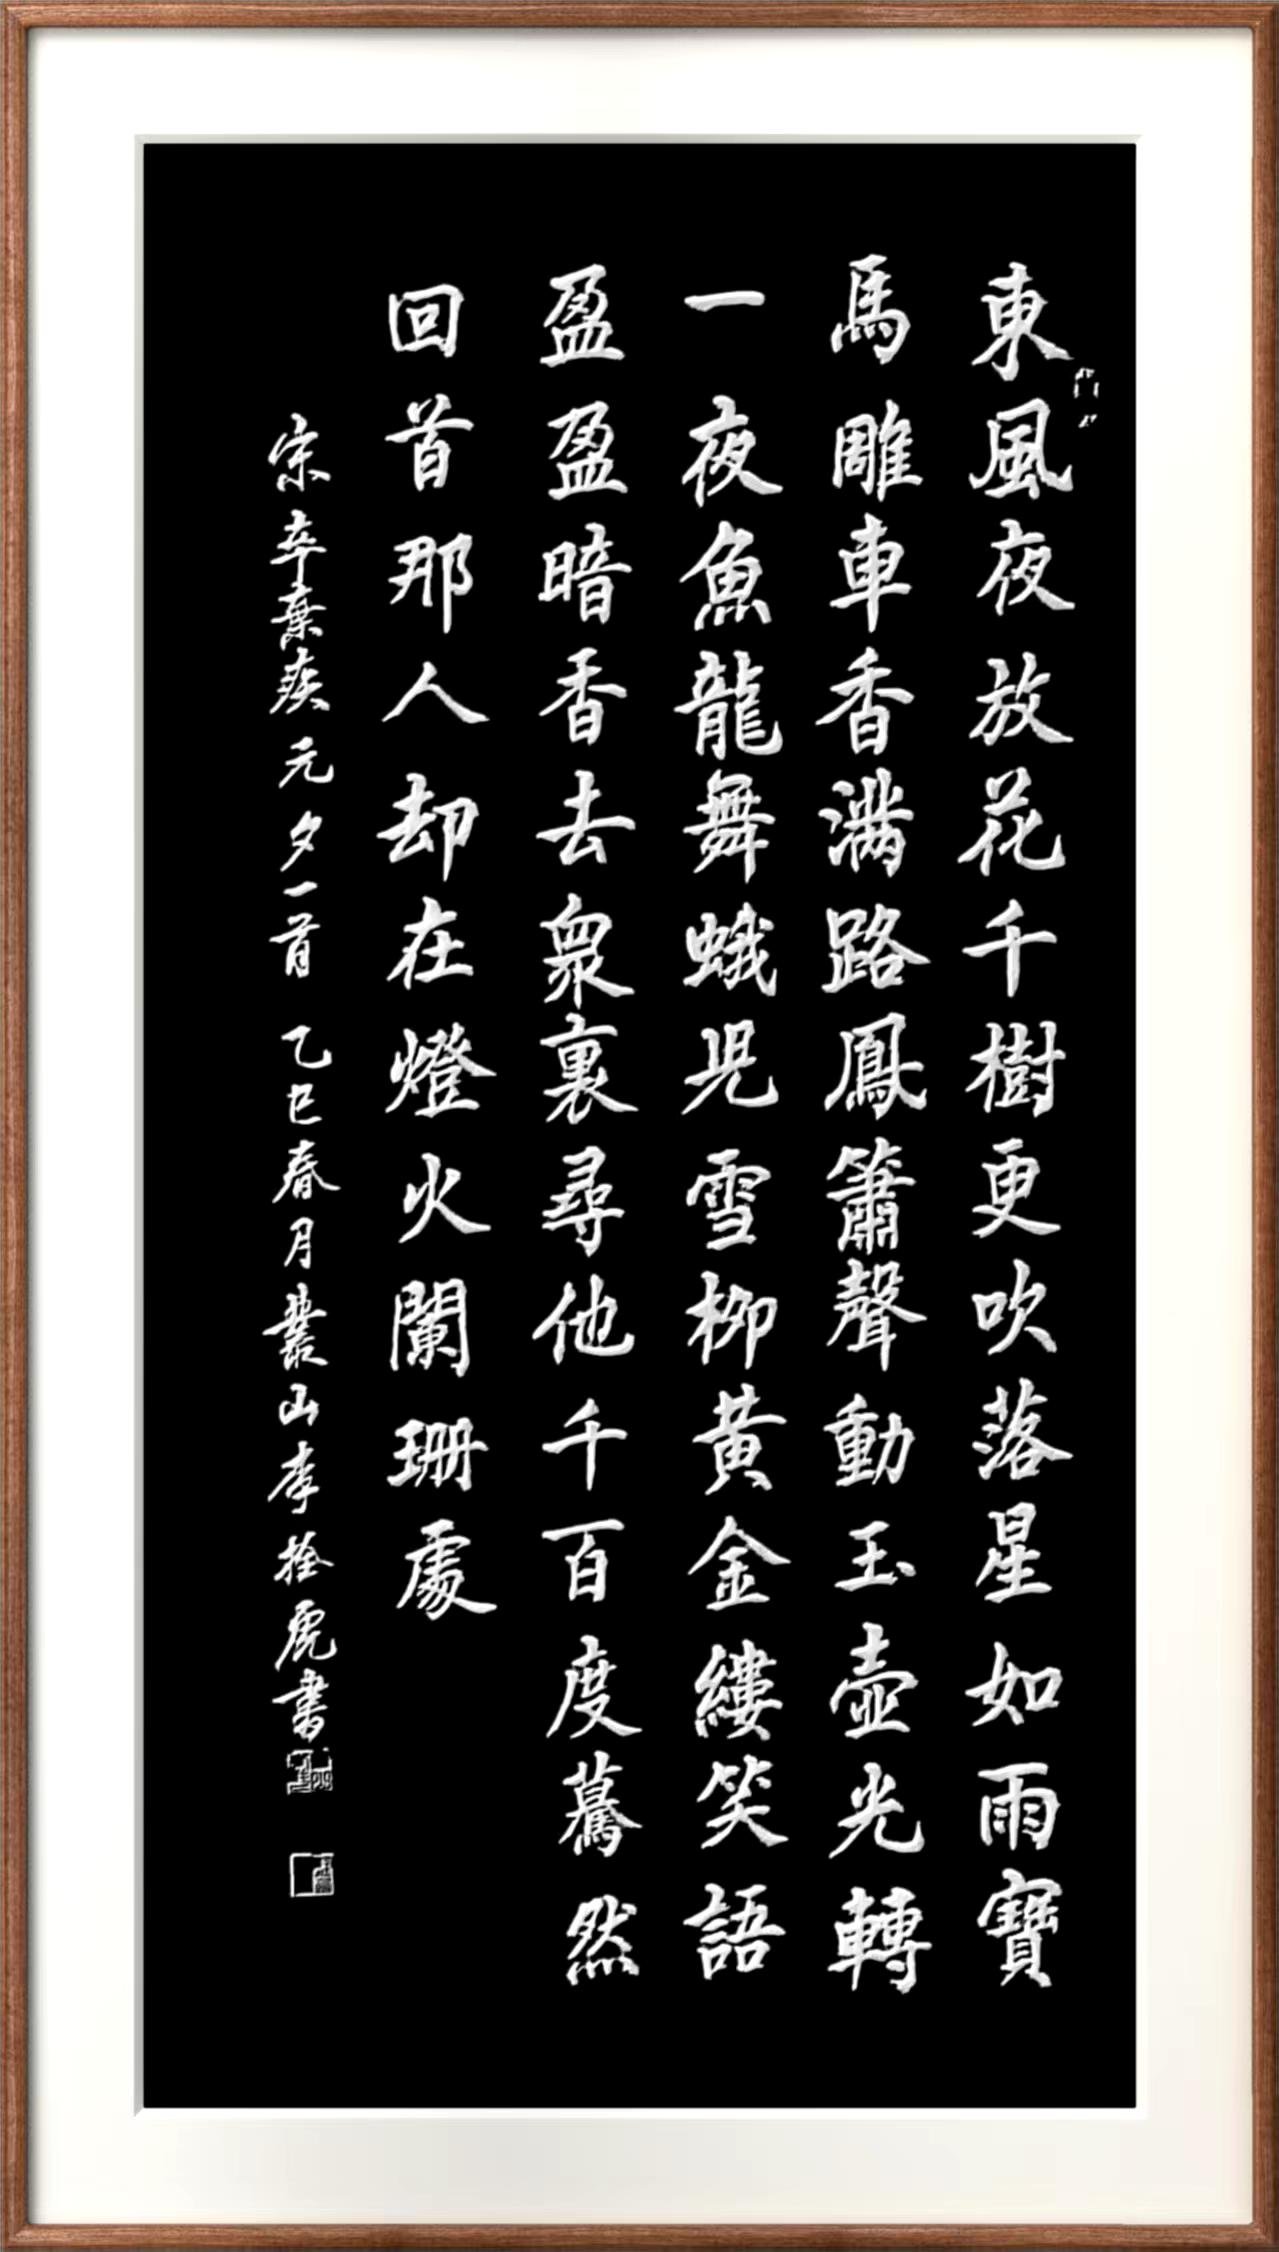 東風夜放花千樹更吹落星如雨寶
馬雕車香满路鳳簫聲動玉壺光轉
一夜魚龍舞蛾兒雪柳黄金縷笑語
盈盈暗香去衆裏尋他千百度驀然
回首那人却在燈火闌珊處
宋辛棄疾元夕一首 乙巳春月叢山李拴虎書